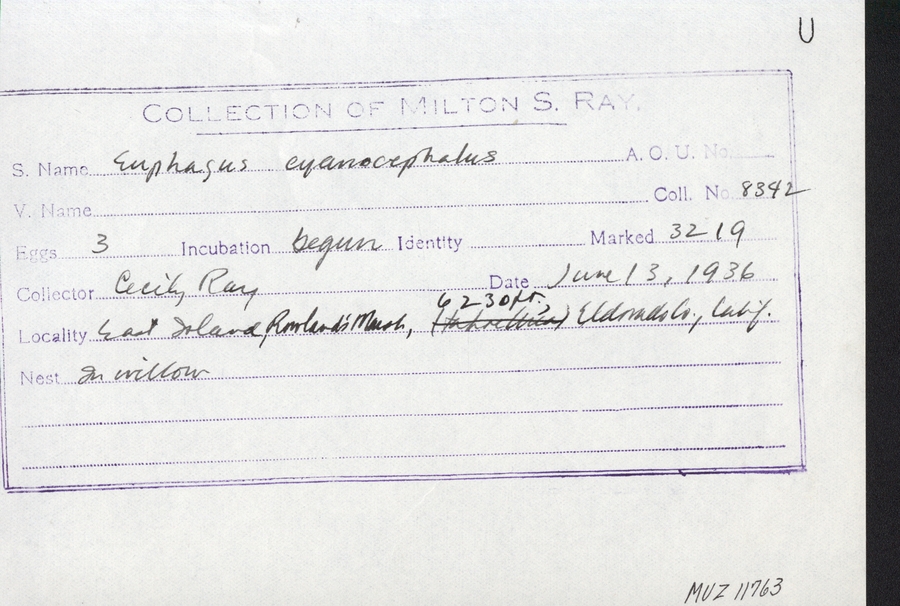 U
COLLECTION OF MILTON S. RAY.
S. Name Euphagus cyanocephalus A. O. U. No.
V. Name Coll. No. 8342
Eggs 3 Incubation begun Identity Marked 3219
Collector Cecily Ray Date June 13, 1936
6230 ft.,
Locality East Island, Rowland's Marsh, Eldorado Co., Calif.
Nest In willow
MVZ 11763